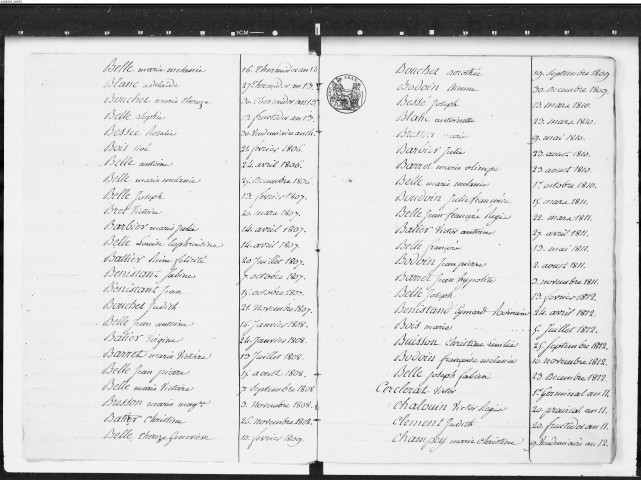 Belle marie melanie 16. Thermidor an 13.
Blanc adelaide 27 Thermidor an 13.
Bouchet marie thereze 30. Thermidor an 13.
Belle Sophie 13. fructidor an 13.
Bessee Rosalie 30. Vendemiaire an 14.
Bois Noé 21. fevrier 1806.
Belle antoine 24. avril 1806.
Belle marie melanie 25. Decembre 1806.
Belle Joseph 13. fevrier 1807.
Bret Victoire 20. mars 1807.
Barbier marie Julie 14. avril 1807.
Belle Louise 14. avril 1807.
Battier felicité 20 Juillet 1807.
Benistant Sabine 7 octobre 1807.
Benistant Jean 15. octobre 1807.
Bouchet Judith 21. Novembre 1807.
Belle Jean antoine 16. Janvier 1808.
Batier Virginie 24. Janvier 1808.
Barret marie Victoire 13. Juillet 1808.
Belle Jean pierre 15. aoust 1808.
Belle marie Victoire 7. Septembre 1808.
Bresson marie marg.te 3. Novembre 1808.
Batier Christine 26. Novembre 1808.
Belle thereze Genevieve 10. fevrier 1809.
Bouchet dorothée 19. Septembre 1809
Bodoin 30. Decembre 1809.
Besse Joseph 13. mars 1810.
Blanc antoinette 23. mars 1810.
Bresson marie 9. mai 1810.
Barbier Julie 23. aoust 1810.
Barret marie olimpe 23. aoust 1810.
Belle marie melanie 1.er octobre 1810.
Boudoin Julie françoise 15. mars 1811.
Belle Jean françois Regis 22. mars 1811.
Batier Victor antoine 27. avril 1811.
Belle françois 13. mai 1811.
Bodoin Jean pierre 2. aoust 1811.
Barret Jean hypolite 3. novembre 1811.
Belle Joseph 13. fevrier 1812.
Benistand Eymard Romain 24. avril 1812.
Bois marie 5. Juillet 1812.
Buisson Christine emilie 25. Septembre 1812.
Bodoin françoise melanie 10. novembre 1812.
Belle Joseph fabien 23. Decembre 1812.
Cerclerat Victor 1.er Germinal an 11.
Chalouin Victor Regis 20. prairial an 11.
Clement Judith 20. fructidor an 11.
Champey marie Christine 9. Vendemiaire an 12.